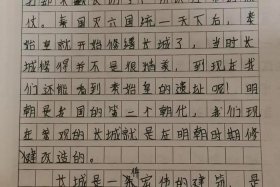 仗。秦国灭六国统一天下后，秦
始皇就开始修缮长城了，当时长
城修得并不是很精美，到现在我
们还能看到秦始皇的遗址呢！明
朝是我国的第二个朝代，我们现
在常见的长城就是在明朝时期修
健改造的。
长城是一座宏伟的建筑，是